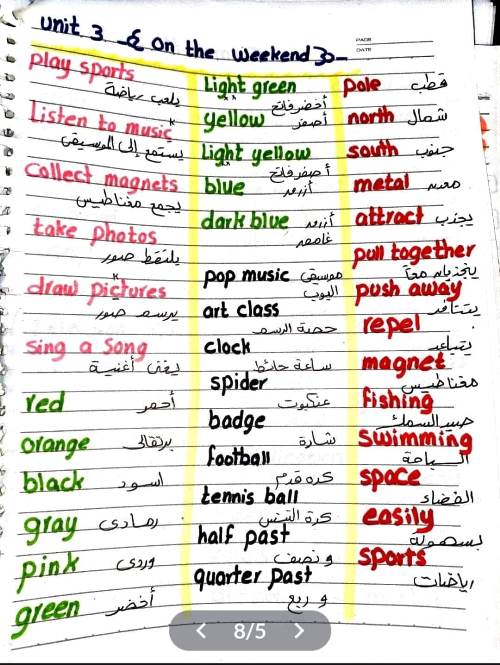 Unit 3 On the weekend
PAGE
DATE
play sports
يلعب رياضة
Listen to music
يستمع إلى الموسيقى
collect magnets
يجمع مغناطيس
take photos
يلتقط صور
draw pictures
يرسم صور
Sing a Song
يغنى أغنية
red أحمر
orange برتقالى
black اسود
gray رمادى
pink وردى
green أخضر
Light green
أخضر فاتح
yellow أصفر
Light yellow
أصفر فاتح
blue أزرق
dark blue أزرق
غامق
pop music موسيقى
البوب
art class
حصة الرسم
clock
ساعة حائط
spider
عنكبوت
badge
شارة
football
كرة قدم
tennis ball
كرة التنس
half past
ونصف
quarter past
وربع
pole قطب
north شمال
south جنوب
metal معدن
attract يجذب
pull together
ينجذبان معاً
push away
يتنافر
repel
يتباعد
magnet
مغناطيس
fishing
صيد السمك
Swimming
السباحة
space
الفضاء
easily
بسهولة
sports
رياضات
8/5